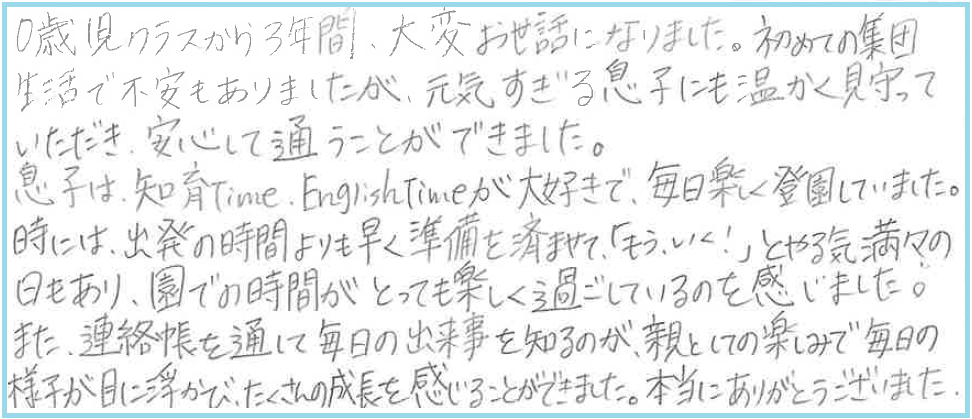 0歳児クラスから3年間、大変お世話になりました。初めての集団
生活で不安もありましたが、元気すぎる息子にも温かく見守って
いただき、安心して通うことができました。
息子は、知育Time、EnglishTimeが大好きで、毎日楽しく登園していました。
時には、出発の時間よりも早く準備を済ませて、「もう、いく!」とやる気満々の
日もあり、園での時間がとっても楽しく過ごしているのを感じました。
また、連絡帳を通して毎日の出来事を知るのが、親としての楽しみで毎日の
様子が目に浮かび、たくさんの成長を感じることができました。本当にありがとうございました.